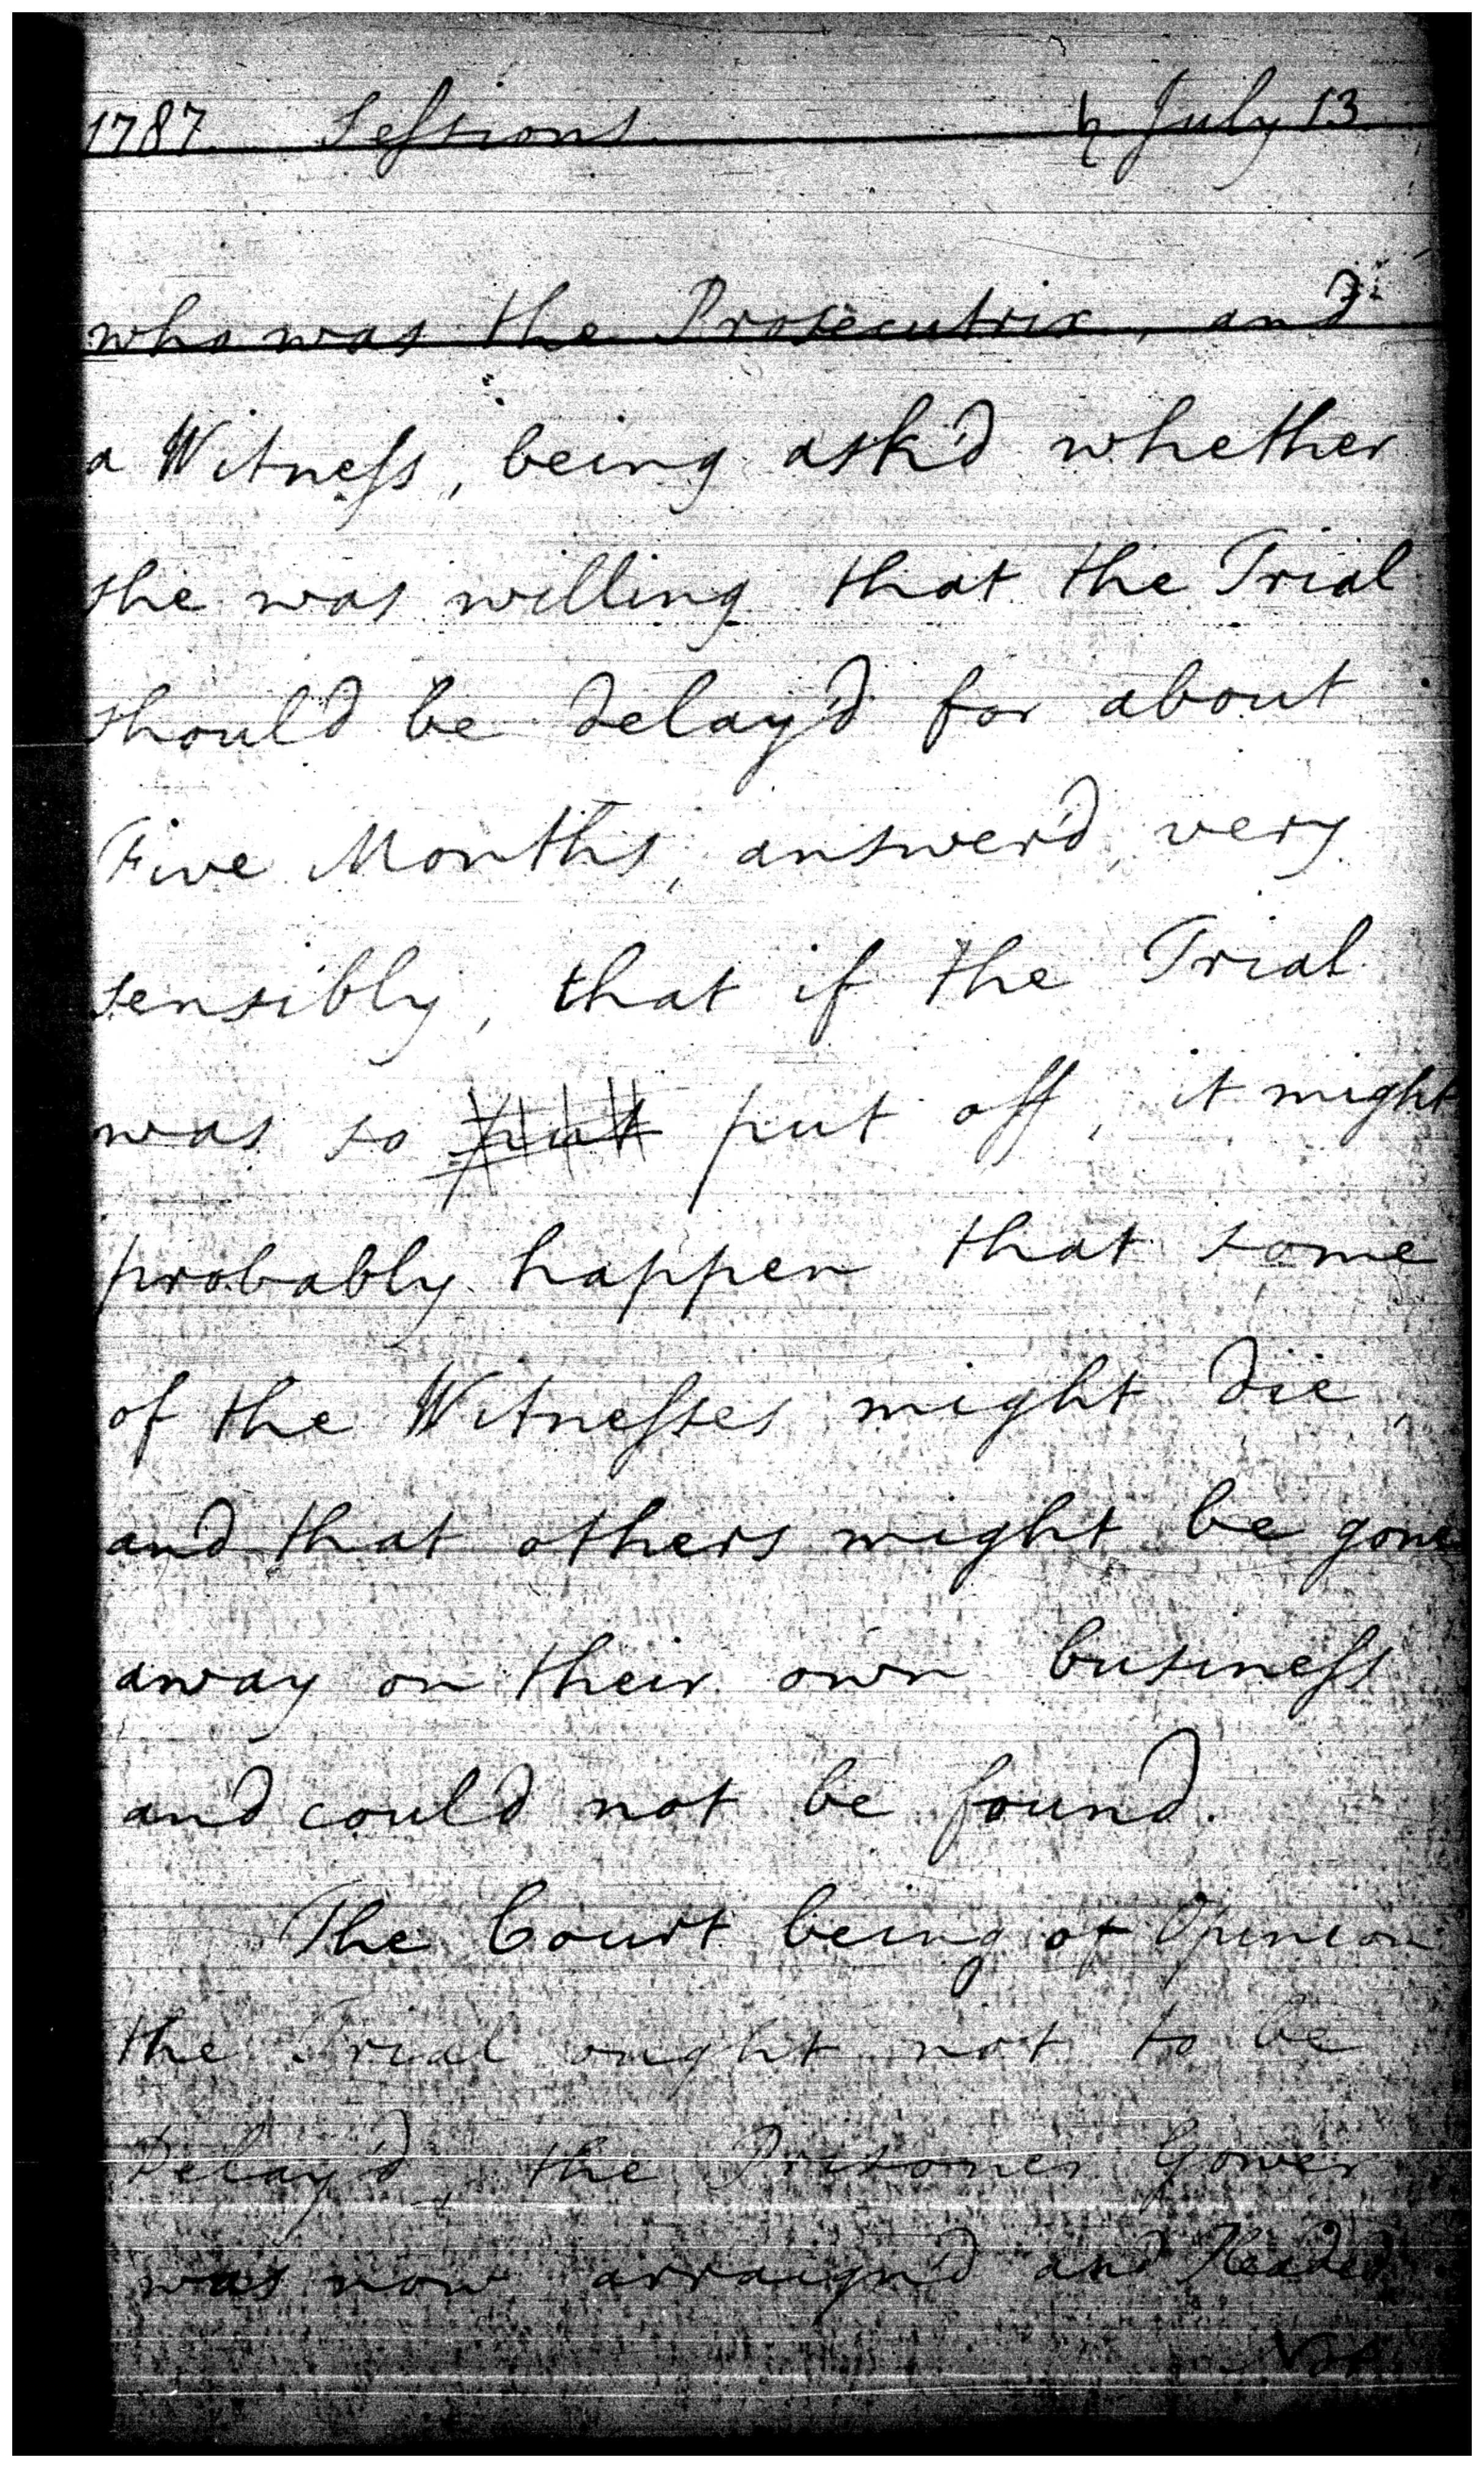 1787. Sessions ♄ July 13
who was the Prosecutrix, and
a Witness, being ask'd whether
she was willing that the Trial
should be delay'd for about
Five Months, answer'd, very
sensibly, that if the Trial
was so put put off, it might
probably happen that some
of the Witnesses might die,
and that others might be gone
away on their own business
and could not be found.
The Court being of Opinion
the Trial ought not to be
Delay'd, the Prisoner Gower
was now arraign'd and Pleaded
Not